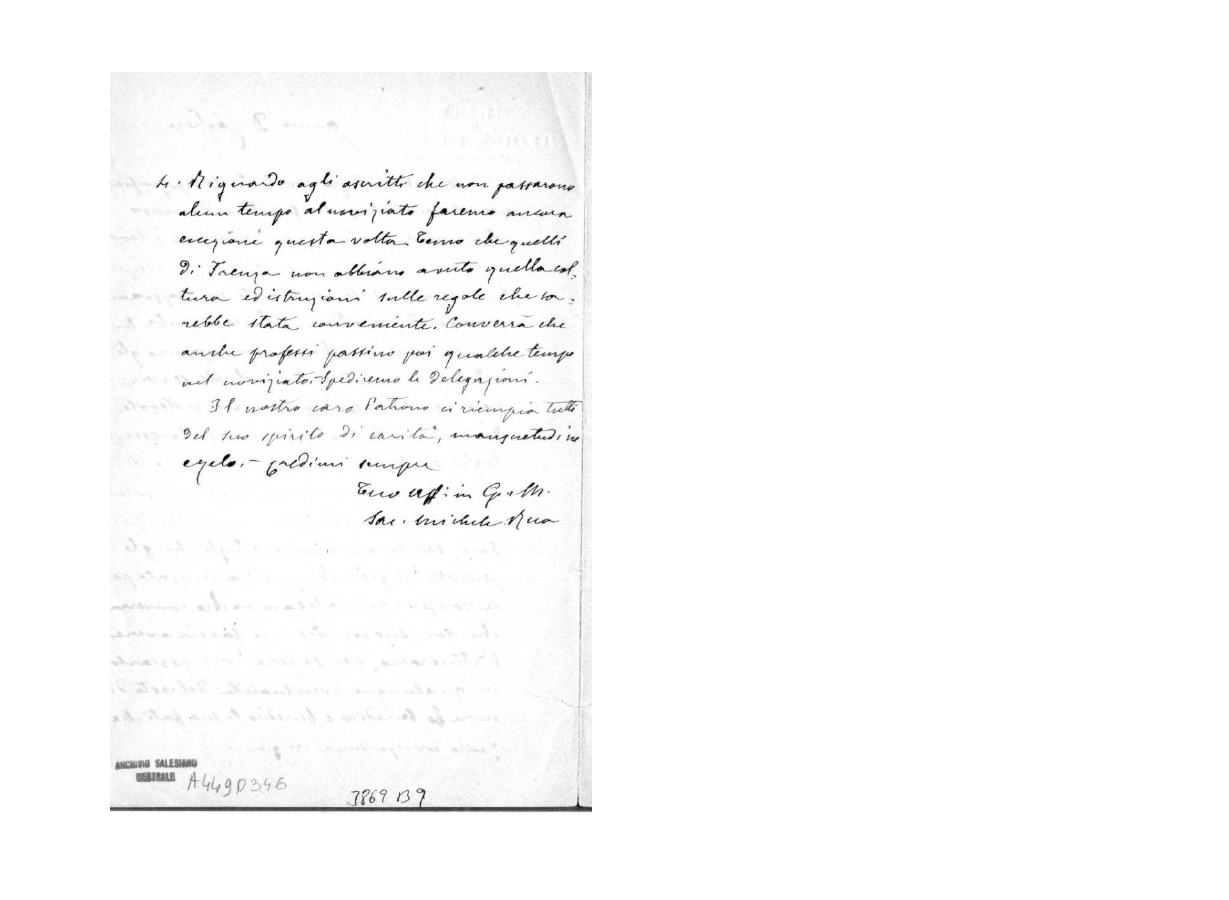 4. Riguardo agli ascritti che non passarono
alcun tempo al noviziato faremo ancora
eccezione questa volta. Temo che quelli
di Faenza non abbiano avuto quella col-
tura ed istruzioni sulle regole che sa-
rebbe stata conveniente. Converrà che
anche professi passino poi qualche tempo
nel noviziato. Spediremo le delegazioni.
Il nostro caro Patrono ci riempia tutti
del suo spirito di carità, mansuetudine
e zelo. - Credimi sempre
Tuo aff: in G. e M.
Sac. Michele Rua
ARCHIVIO SALESIANO
CENTRALE
A4490346
3869 B9